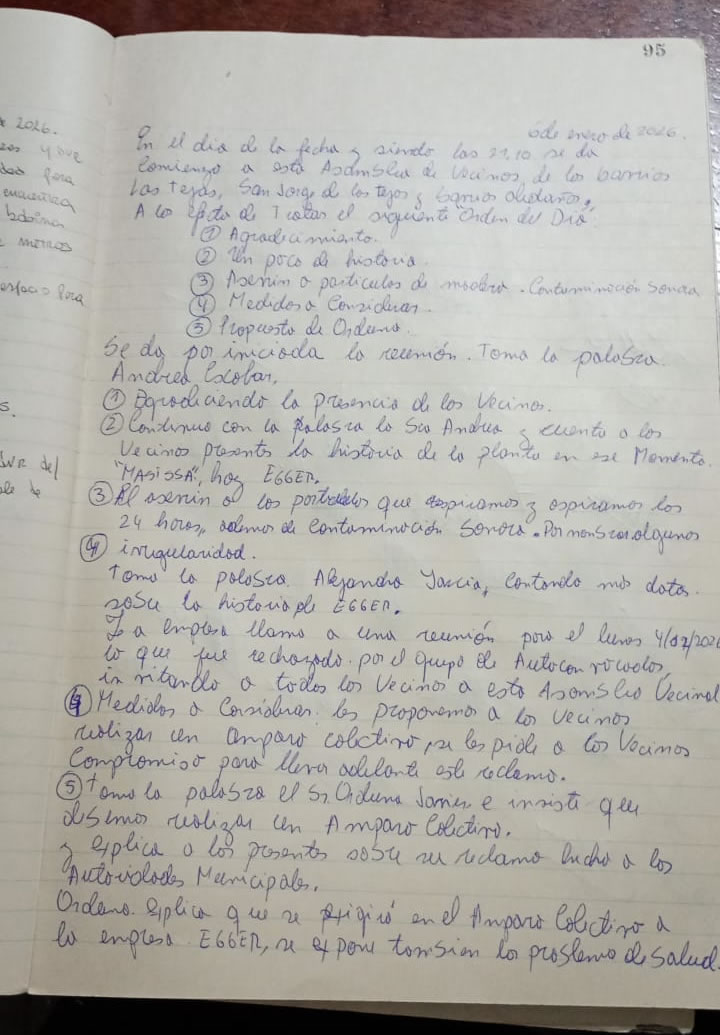 95
6 de enero de 2026.
En el dia de la fecha y siendo las 21,10 se da
Comienzo a esta Asamblea de Vecinos de los barrios
Las Tejas, San Jorge de los tejos y barrios aledaños,
A los efecto de Tratar el siguiente "Orden del Dia"
① Agradecimiento.
② Un poco de historia.
③ Aserrin o particulas de madera. Contaminación Sonora
④ Medidas a Considerar.
⑤ Propuesta de Orduna.
Se da por iniciada la reunión. Toma la palabra
Andrea Escobar,
① Agradeciendo la Presencia de los Vecinos.
② Continuo con la palabra la Sra Andrea y cuenta a los
Vecinos presentes la historia de la planta en ese Momento
"MASISSA", hoy EGGER.
③ El aserrin o los particulas que aspiramos y aspiramos los
24 horas, ademas de Contaminación Sonora. Por algunos
④ irregularidad.
Toma la palabra Alejandra Garcia, Contando mas datos
sobre la historia de EGGER.
La empresa llamo a una reunión para el lunes
lo que fue rechazado por el grupo de Autoconvocados,
invitando a todos los Vecinos a esta Asamblea Vecinal
④ Medidas a Considerar les proponemos a los Vecinos
realizar un Amparo colectivo, se les pide a los Vecinos
Compromiso para llevar adelante este reclamo.
⑤ Toma la palabra el Sr. Orduna Javier e insiste que
debemos realizar un Amparo Colectivo.
y explica a los presentes sobre su reclamo hecho a los
Autoridades Municipales.
Ordena Explica que se exigirá en el Amparo Colectivo a
la empresa EGGER, se expone tambien los problema de Salud.
2026.